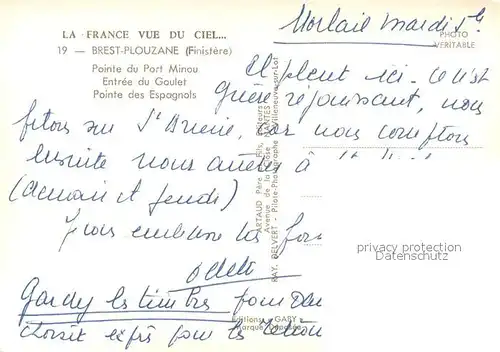 LA FRANCE VUE DU CIEL...
19 — BREST-PLOUZANE (Finistère)
Pointe du Port Minou
Entrée du Goulet
Pointe des Espagnols
PHOTO
VERITABLE
Morlaix mardi
Il pleut ici. Ce n'est
guère réjouissant, nous
filons sur St Brieuc, car nous comptons
ensuite nous arrêter à
(demain et jeudi)
Je vous embrasse
Odette
Gardez les timbres pour
choisit exprès pour
ARTAUD Père et Fils, Editeurs
Avenue de la NANTES
RAY. DELVERT - Pilote-Photographe Villeneuve-sur-Lot
Editions "GABY"
Marque Déposée
privacy protection
Datenschutz